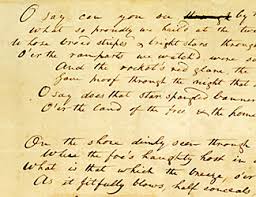 O say can you see through by th
What so proudly we hail'd at the tw
Whose broad stripes & bright stars through
O'er the ramparts we watch'd, were so
And the rocket's red glare, the
Gave proof through the night that
O say does that star spangled banner
O'er the land of the free & the home
On the shore dimly seen through
Where the foe's haughty host in
What is that which the breeze, o'er
As it fitfully blows, half conceals